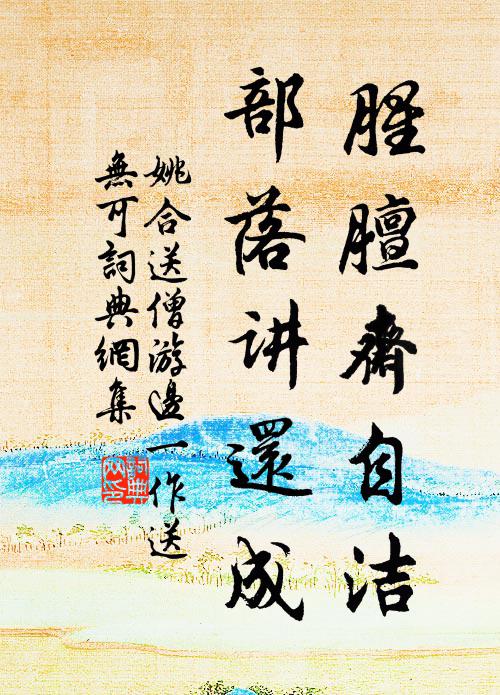 腥膻齋自洁
部落讲還成
姚合送僧游邊一作送
無可詞典網集
詞典